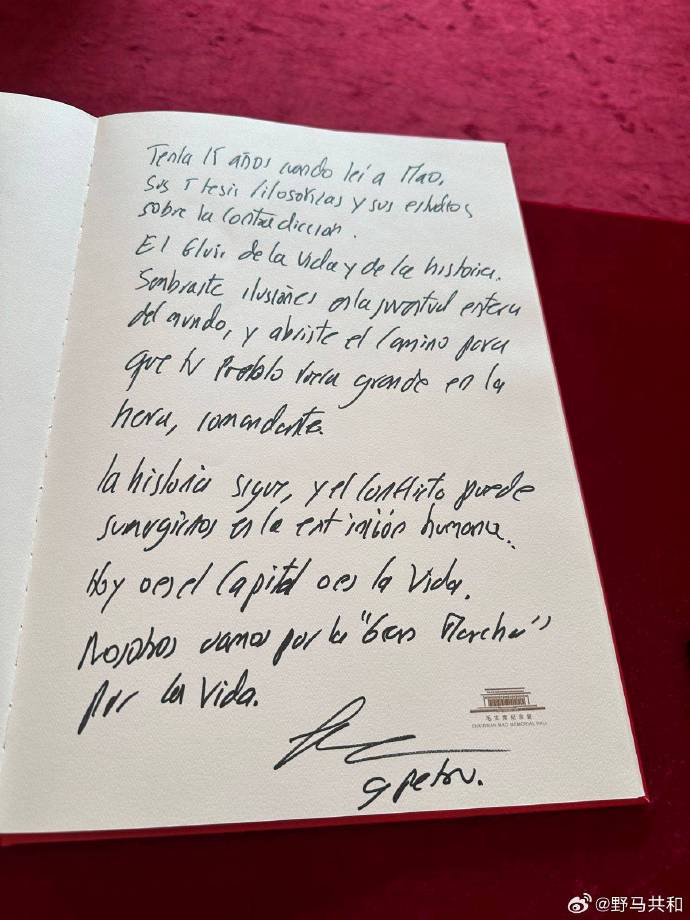 Tenía 15 años cuando leí a Mao,
Sus Tesis filosoficas y sus estudios
sobre la Contradiccion.
El fluir de la vida y de la historia.
Sembraste ilusiones en la juventud entera
del mundo, y abriste el Camino para
que tu Pueblo fuera grande en la
comandante.
la historia sigue, y el Conflicto puede
sumergirnos en la extinción humana.
Hoy o es el Capital o es la Vida.
Nosotros vamos por la "Gran Marcha"
por la Vida.
G Petro.
毛主席纪念堂
CHAIRMAN MAO MEMORIAL HALL
@野马共和